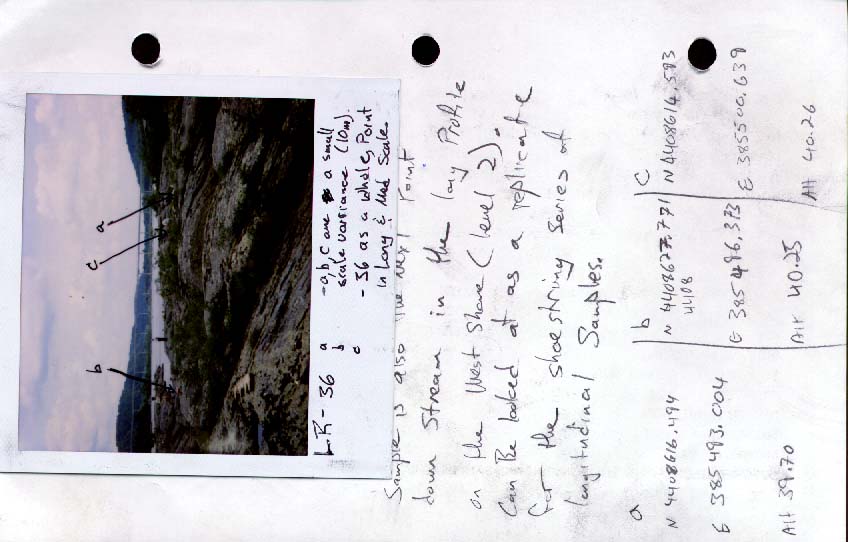 b
c
a
LR-36 a -a,b,c are a small
b scale variance (10m).
c -36 as a whole, Point
in Long & Med Scale.
Sample is also the next Point
down Stream in the long Profile
on the West Shore (level 2).
Can Be looked at as a replicate
for the shoestring series of
longitudinal Samples.
a
N 4408616.494
E 385493.004
Alt 39.70
b
N 4408627.771
4408
E 385496.373
Alt 40.25
c
N 4408614.593
E 385500.639
Alt 40.26